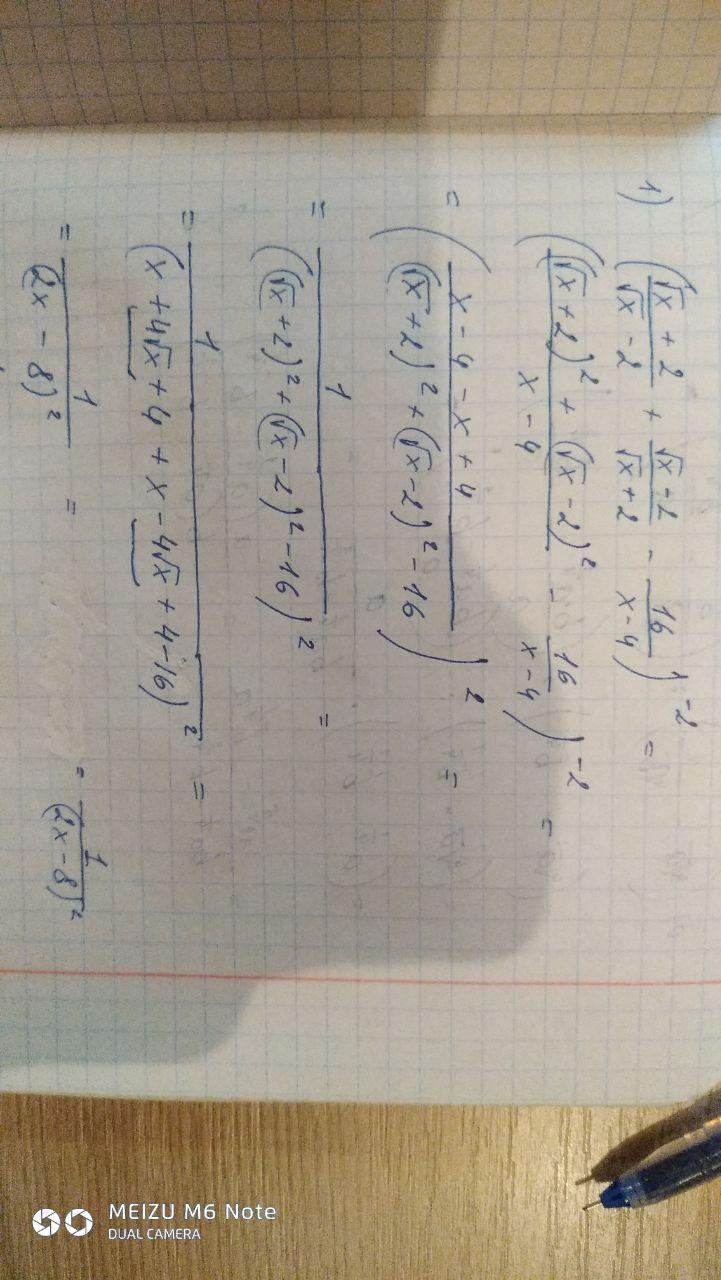 1) ((√x + 2)/(√x - 2) + (√x - 2)/(√x + 2) - 16/(x - 4))^-2 =
(((√x + 2)² + (√x - 2)²)/(x - 4) - 16/(x - 4))^-2 =
= ((x - 4 - x + 4)/((√x + 2)² + (√x - 2)² - 16))² =
= 1/((√x + 2)² + (√x - 2)² - 16)² =
= 1/(x + 4√x + 4 + x - 4√x + 4 - 16)² =
= 1/(2x - 8)² = = 1/(2x - 8)²
MEIZU M6 Note
DUAL CAMERA